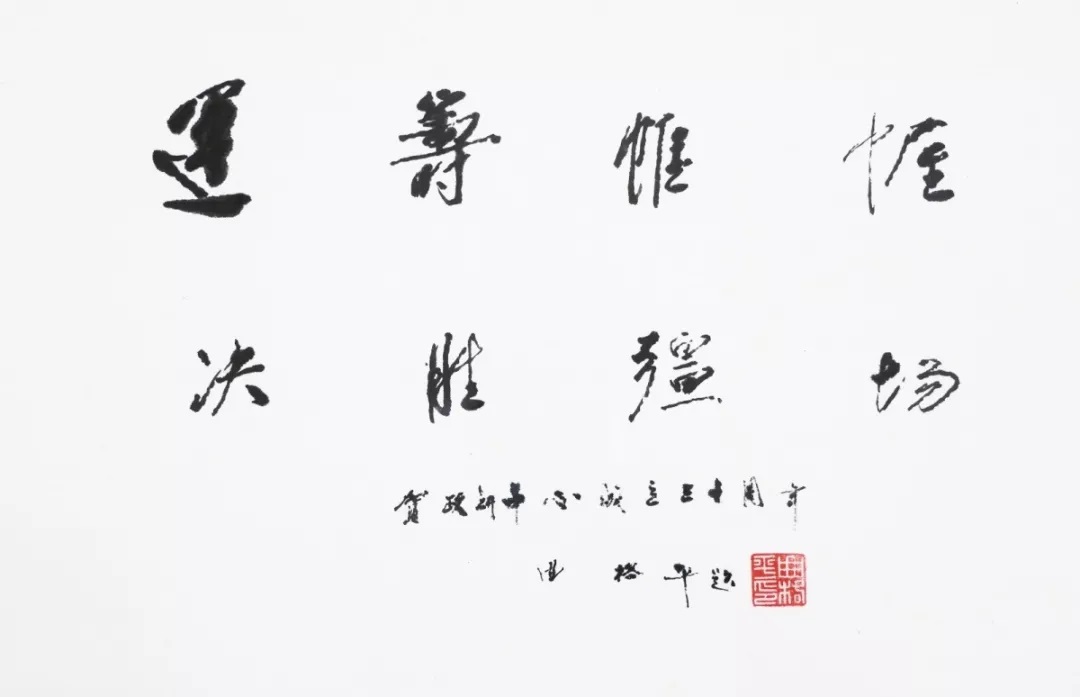 運籌帷幄
决胜疆场
贺政研中心成立三十周年
曲格平题
曲格平印